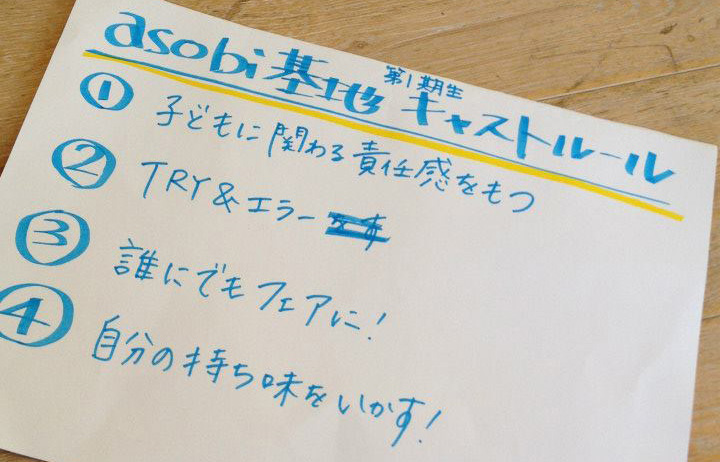 asobi基地 第1期生 キャストルール
① 子どもに関わる責任感をもつ
② TRY&エラー
③ 誰にでもフェアに!
④ 自分の持ち味をいかす!